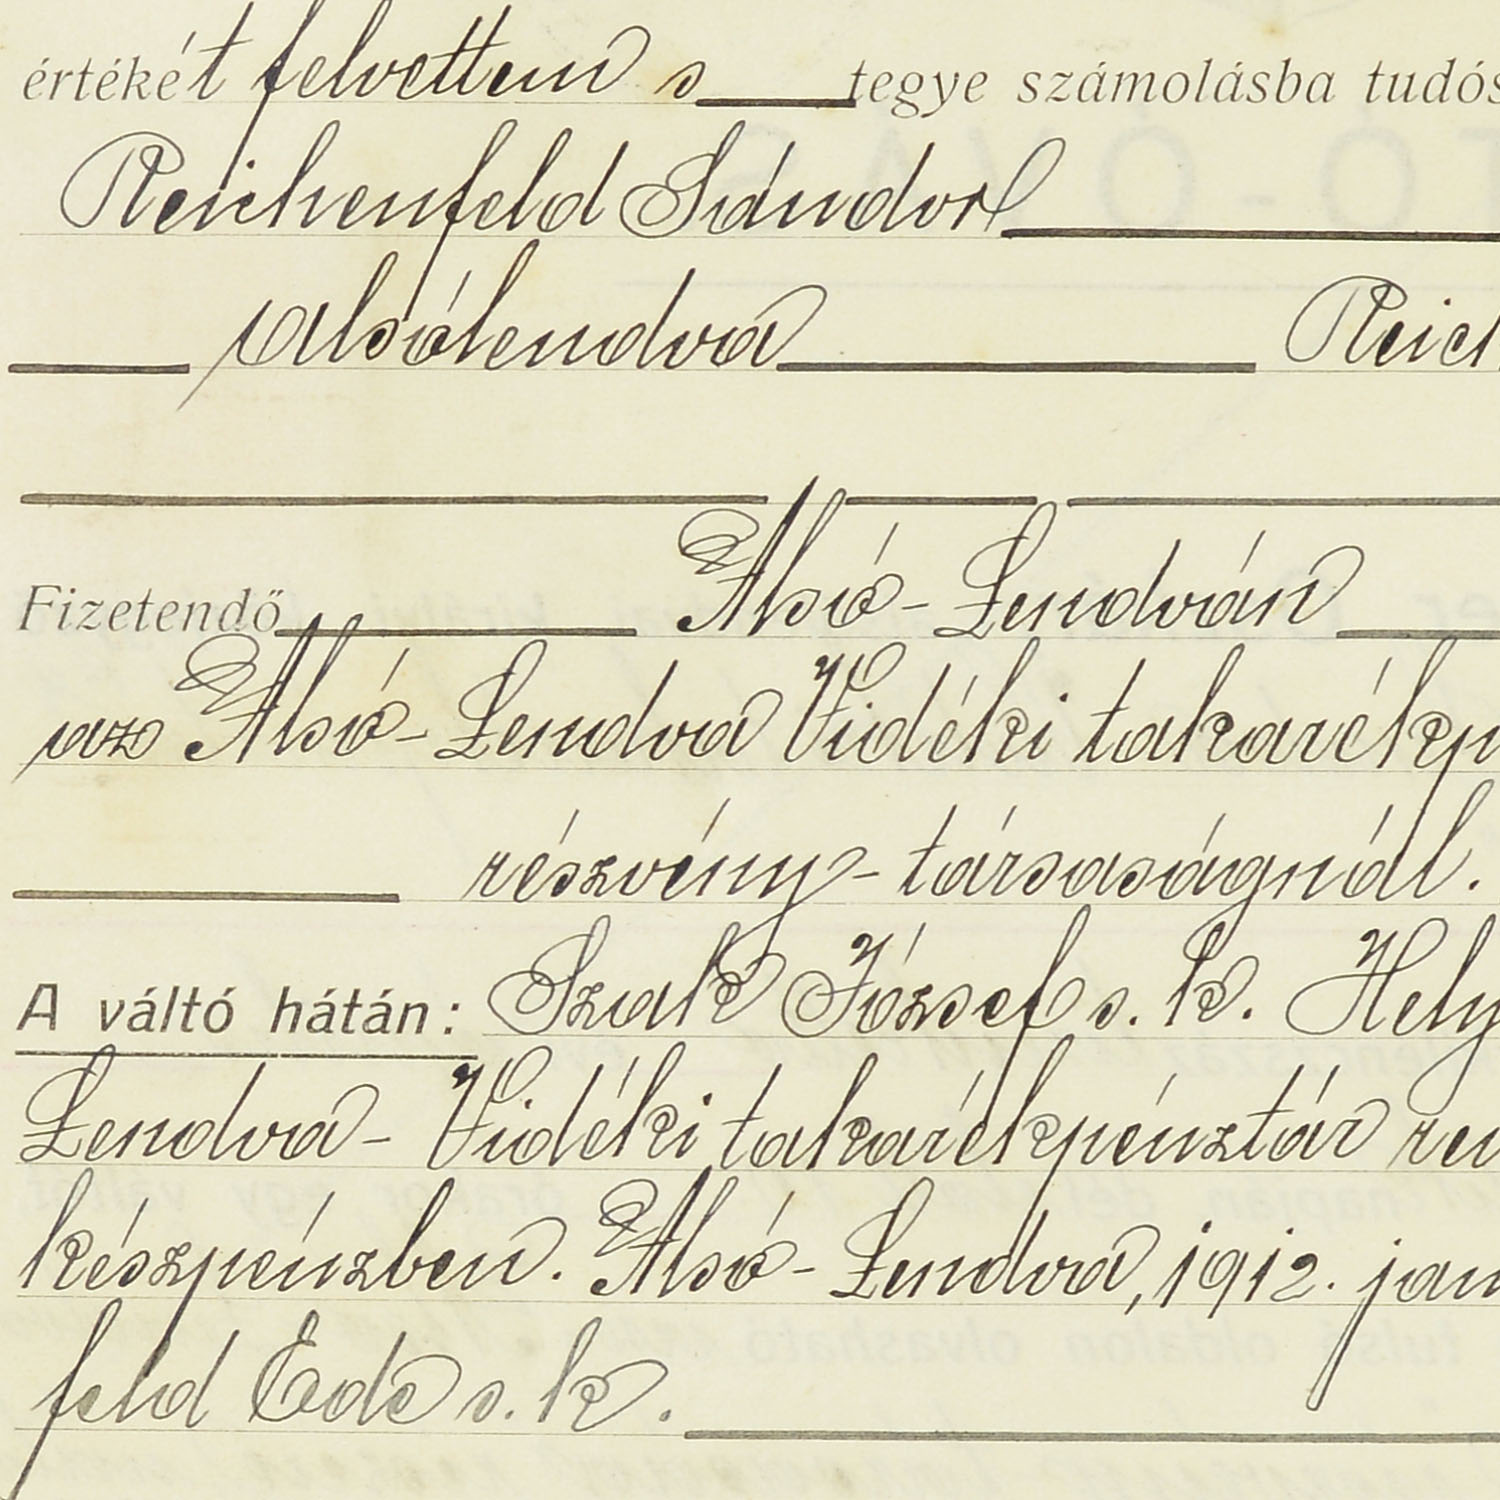 értékét felvettem s tegye számolásba tudós
Reichenfeld Sándor
Alsólendva Reich
Fizetendő Alsó-Lendván
az Alsó-Lendva Vidéki takarékp
részvény-társaságnál.
A váltó hátán: Szak József s. k. Hely
Lendva-Vidéki takarékpénztár ré
készpénzben. Alsó-Lendva, 1912. jan
feld Ede s. k.